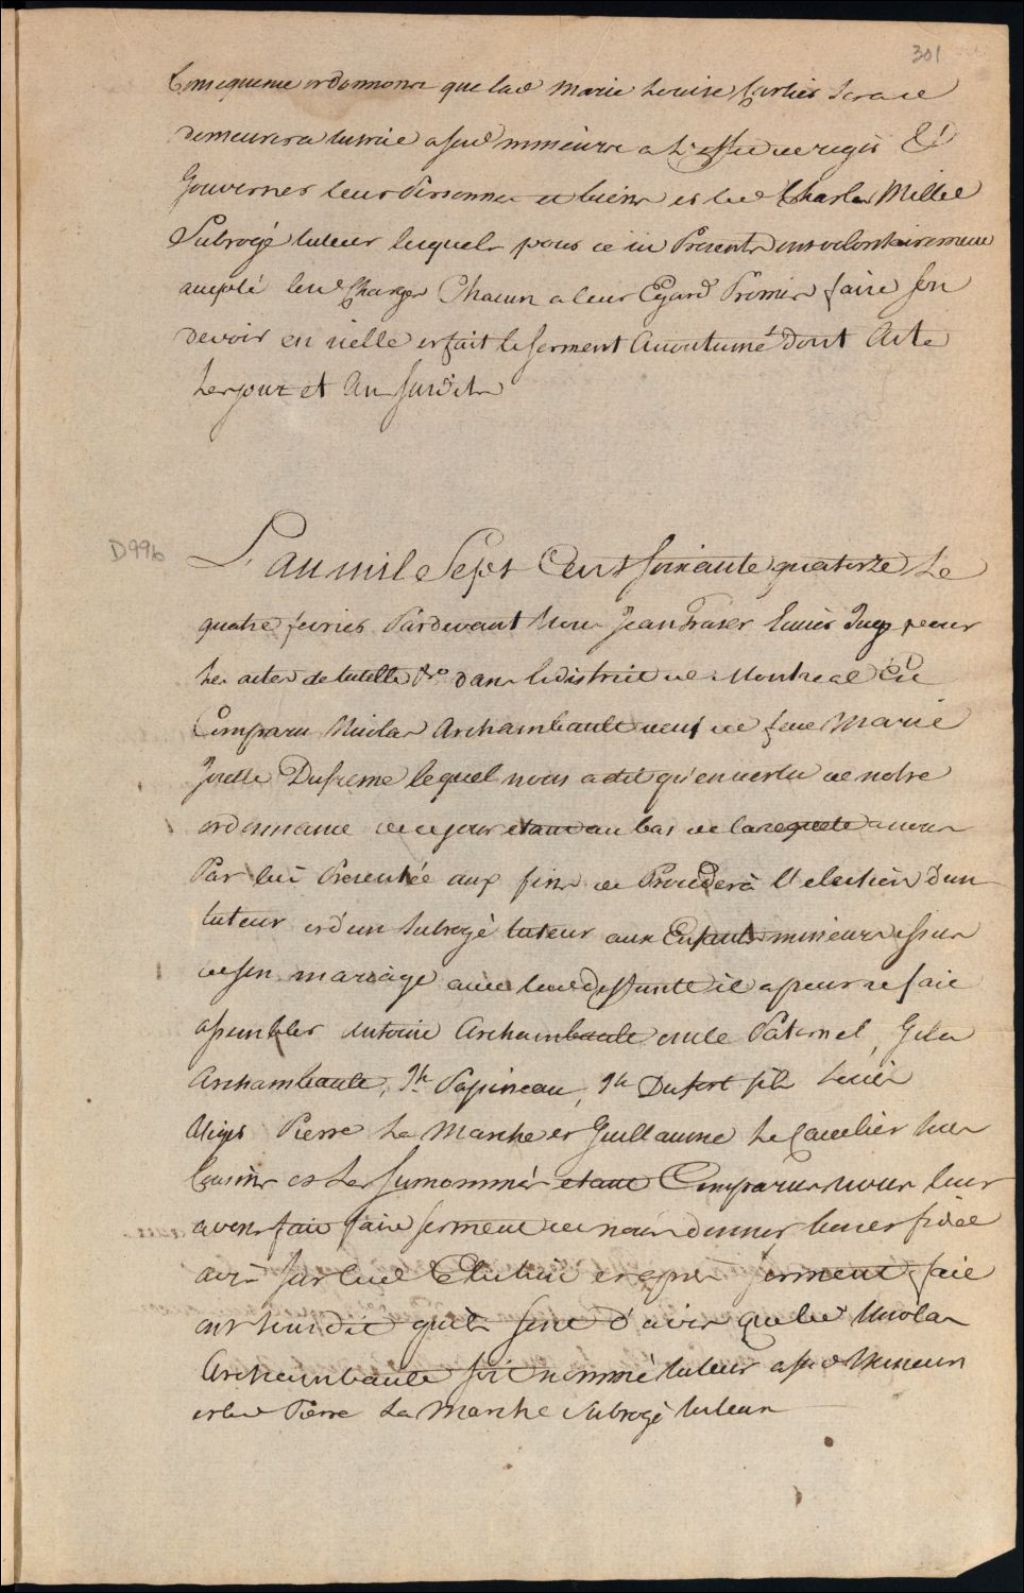 301
Consequence ordonnons que lad Marie Louise Cartier sera et
demeurera tutrice a sesd mineurs a L'effet de regir &
Gouverner leurs Personnes et biens et led Charles Millet
Subrogé tuteur lesquels pour ce ici Presents ont volontairement
accepté lesd Charges Chacun a leur Egard Promis faire son
devoir en icelle et fait le serment Accoutumé dont Acte
Les jour et An susdits
D996
L'an mil Sept Cent soixante quatorze Le
quatre fevrier Pardevant Nous Jean Fraser Ecuier Juge pour
Les actes de tutelle &ca dans le district de Montreal Est
Comparu Nicolas Archambault veuf de feue Marie
Josette Dufresne lequel nous a dit qu'en vertu de notre
ordonnance de ce jour étant au bas de la requete a nous
Par lui Presentée aux fins de Proceder à l'election d'un
tuteur et d'un subrogé tuteur aux Enfants mineurs issus
de son mariage avec lad deffunte il a pour ce fait
assembler Antoine Archambault oncle Paternel,
Archambault, Jh Papineau, Jh Dufort fils
Pierre La Marche et Guillaume Le Cavelier
Cousins et Les surnommés étant Comparus nous leur
avons fait faire serment de nous donner leur fidel
avis sur lad Election et apres serment fait
ont tous dit qu'ils sont d'avis que led Nicolas
Archambault soit nommé tuteur a sesd Mineurs
et led Pierre La Marche Subrogé tuteur